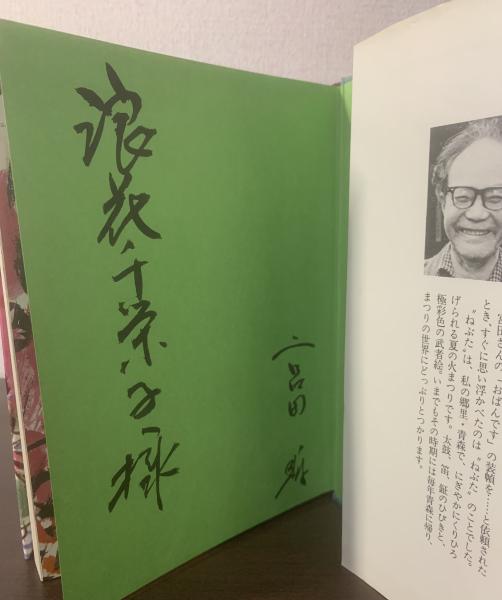 浪花千栄子様
宮田輝
宮田さんの「おばんです」の装幀を……と依頼された
とき、すぐに思い浮かべたのは〝ねぶた〟のことでした。
〝ねぶた〟は、私の郷里・青森で、にぎやかにくりひろ
げられる夏の火まつりです。太鼓、笛、鉦のひびきと、
極彩色の武者絵。いまでもその時期には毎年青森に帰り、
まつりの世界にどっぷりとつかります。